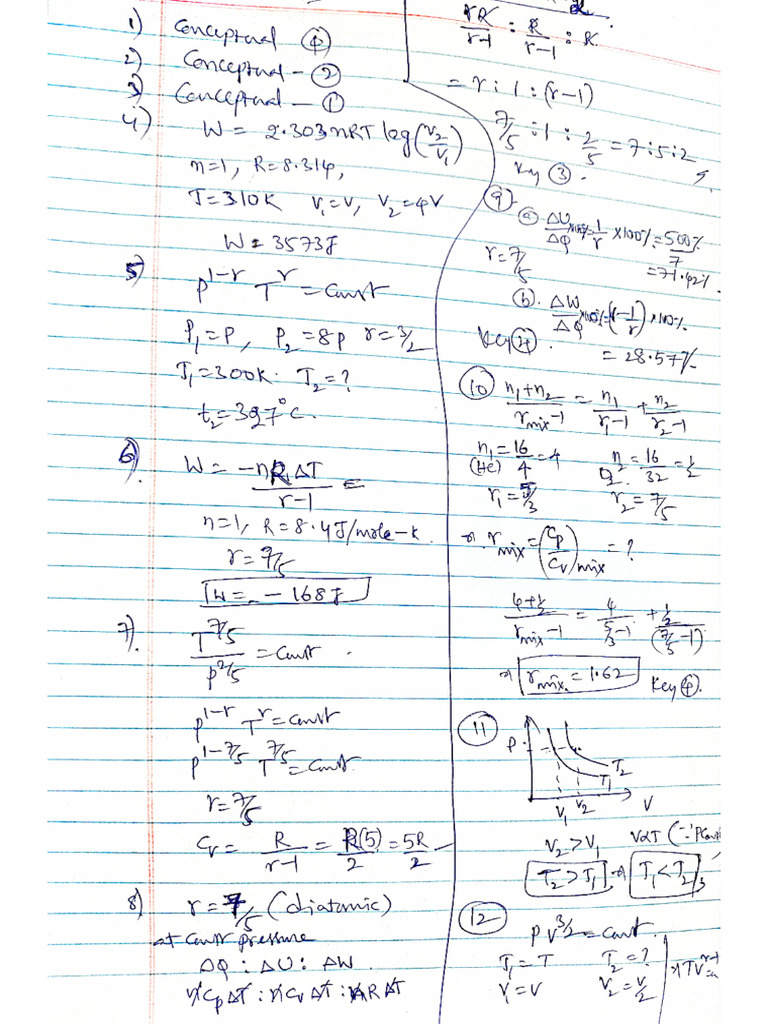 1) Conceptual ④
2) Conceptual - ②
3) Conceptual - ①
4) W = 2.303nRT log(V₂/V₁)
n=1, R=8.314,
T=310K V₁=V, V₂=4V
W = 3573J
5) P^(1-r) T^r = Const
P₁=P, P₂=8P r=3/2
T₁=300K. T₂=?
t₂=327°C.
6) W = -nR ΔT/(r-1) =
n=1, R=8.4J/mole-K.
r=7/5
W = - 168J
7). T^(7/5)/P^(2/5) = Const.
P^(1-r) T^r = Const
P^(1-7/5) T^(7/5) = Const.
r=7/5
Cv = R/(r-1) = R(5)/2 = 5R/2
8) r=7/5 (diatomic)
at Const pressure
ΔQ : ΔU : ΔW.
nCpΔT : nCvΔT : nRΔT
rR/(r-1) : R/(r-1) : R
= r : 1 : (r-1)
7/5 : 1 : 2/5 = 7:5:2
Key ③.
⑨ ⓐ ΔU/ΔQ ×100% = 1/r ×100% = 500%/7
r=7/5 = 71.42%
ⓑ. ΔW/ΔQ ×100% = (1-1/r)×100%
Key ④. = 28.57%
⑩ (n₁+n₂)/(r_mix-1) = n₁/(r₁-1) + n₂/(r₂-1)
n₁ (He) = 16/4 = 4 n₂ O₂ = 16/32 = 1/2
r₁=5/3 r₂=7/5
r_mix = (Cp/Cv)mix = ?
(4+1/2)/(r_mix-1) = 4/(5/3-1) + (1/2)/(7/5-1)
r_mix = 1.62 Key ④.
⑪ P T₂
T₁
V₁ V₂ V
V₂>V₁ VαT (∵ P Const)
T₂>T₁ T₁<T₂
⑫ PV^(3/2) = Const.
T₁=T T₂=?
V₁=V V₂=V/2